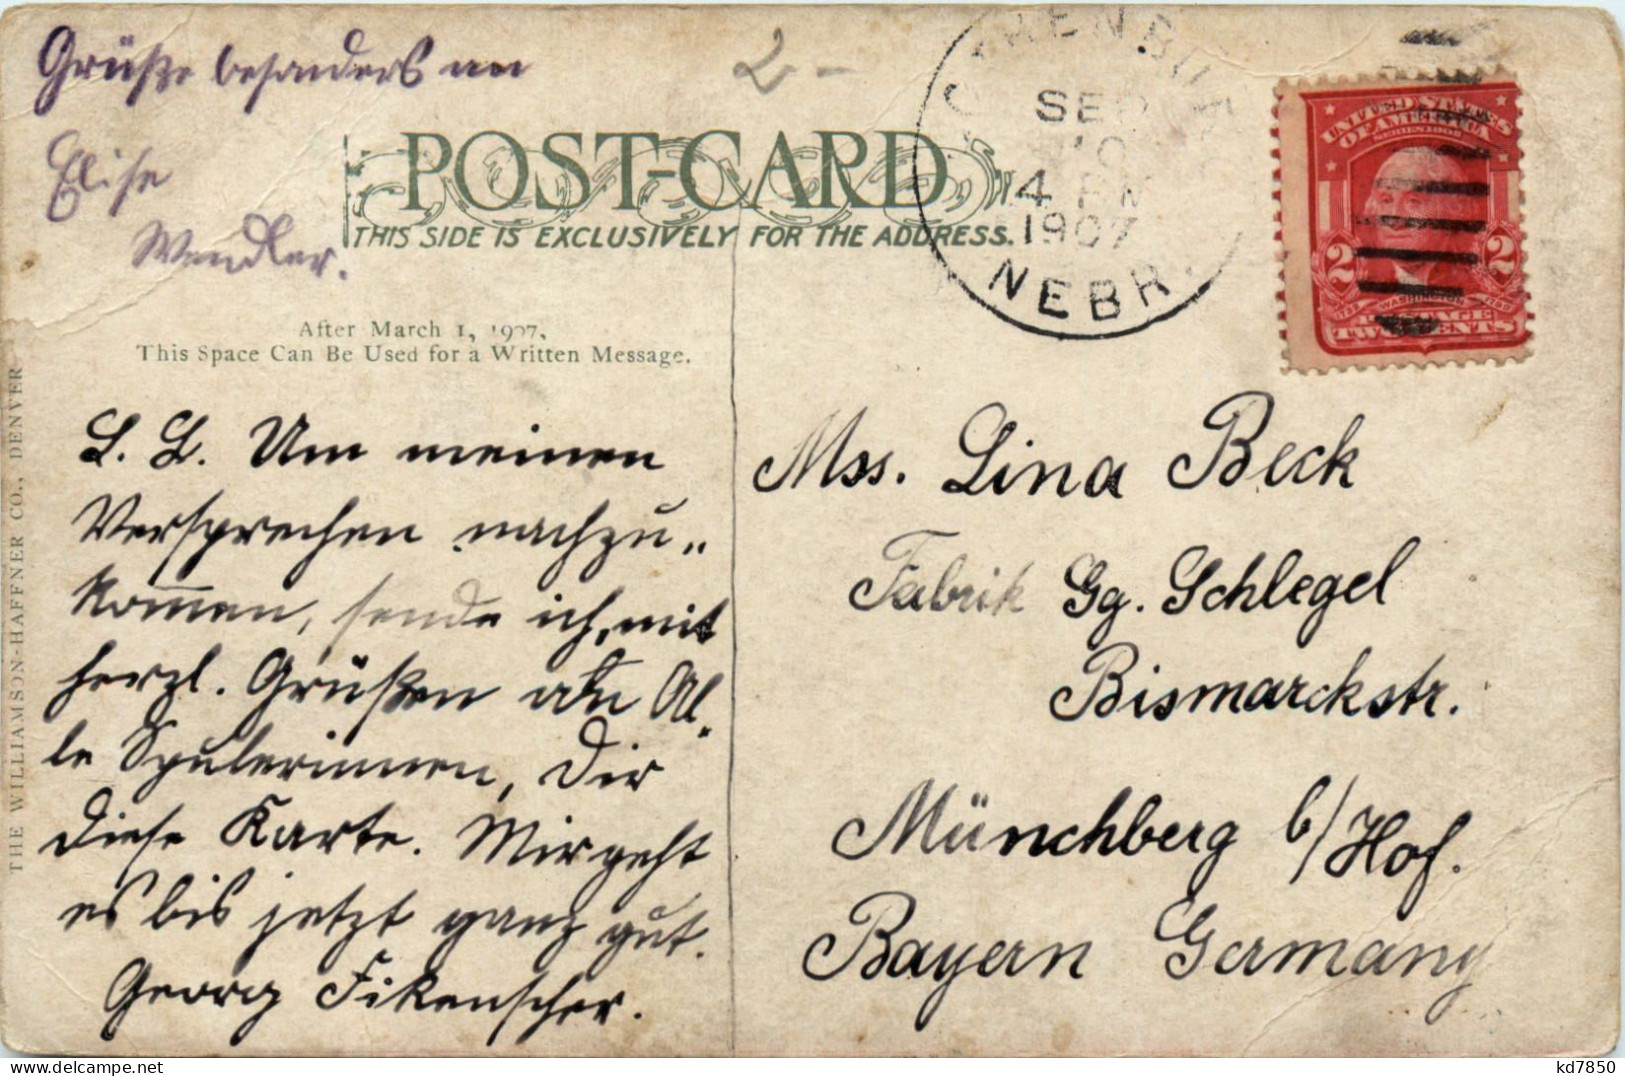 Grüße besonders an
Elise
Wendler.
2 -
POST-CARD
THIS SIDE IS EXCLUSIVELY FOR THE ADDRESS.
After March 1, 1907,
This Space Can Be Used for a Written Message.
THE WILLIAMSON-HAFFNER CO., DENVER
SEP
10
4 PM
1907
NEBR.
UNITED STATES
OF AMERICA
SERIES 1902
2 2
WASHINGTON
POSTAGE
TWO CENTS
L. L. Um meinen
Versprechen nachzu„
kom̄en, sende ich, mit
herzl. Grüßen an Al„
le Spulerinnen, Dir
diese Karte. Mir geht
es bis jetzt ganz gut.
Georg Fikenscher.
Mss. Lina Beck
Fabrik Gg. Schlegel
Bismarckstr.
Münchberg b/Hof.
Bayern Germany
kd7850